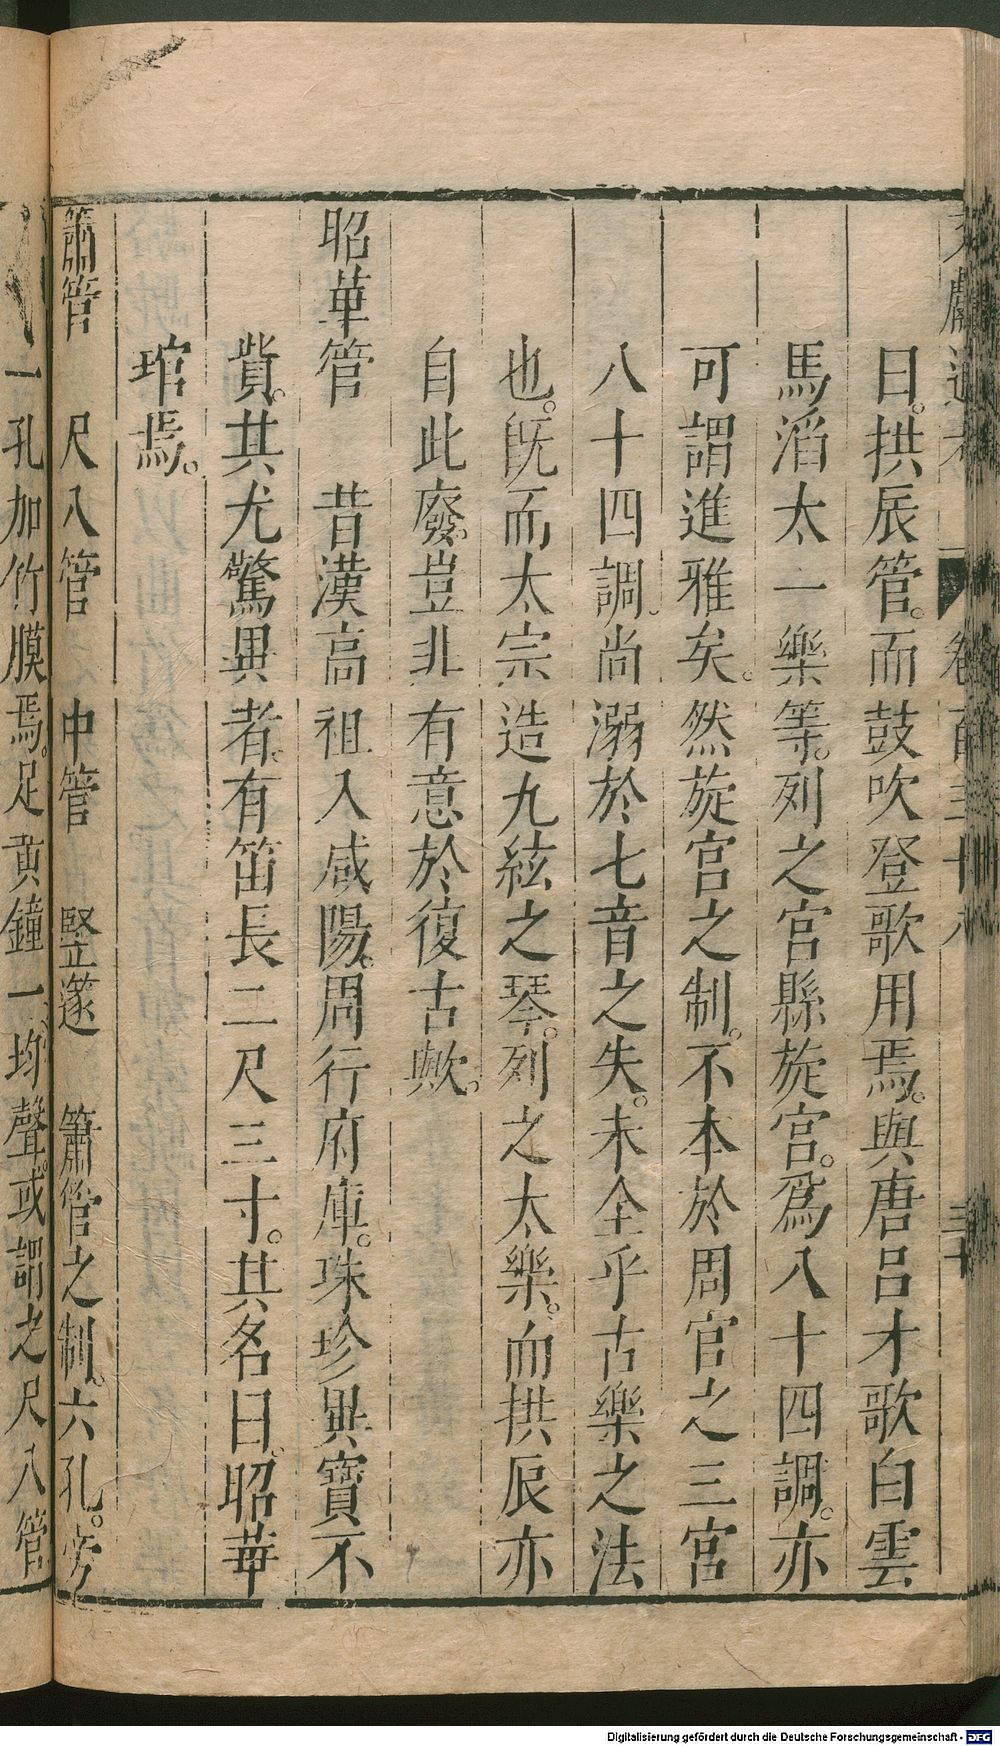 文獻通考 卷百三十八 三十
曰。拱辰管。而鼓吹登歌用焉。與唐呂才歌白雲
馬滔太一樂等。列之宮縣旋宮。爲八十四調。亦
可謂進雅矣。然旋宮之制。不本於周官之三宮
八十四調。尚溺於七音之失。未全乎古樂之法
也。旣而太宗造九絃之琴。列之太樂。而拱辰亦
自此廢。豈非有意於復古歟。
昭華管 昔漢高祖入咸陽。周行府庫。珠珍異寶不
貲。其尤驚異者。有笛長二尺三寸。其名曰。昭華
琯焉。
簫管 尺八管 中管 豎篴 簫管之制。六孔。旁
一孔加竹膜焉。足黃鐘一均聲。或謂之尺八管
Digitalisierung gefördert durch die Deutsche Forschungsgemeinschaft - DFG